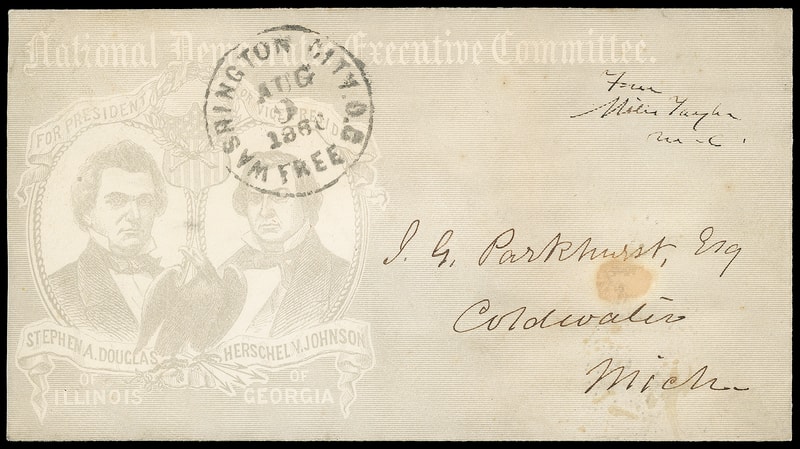 National Democratic Executive Committee.
WASHINGTON CITY. D.C
AUG
9
1860
FREE
FOR PRESIDENT
FOR VICE PRESIDENT
Free
Miles Taylor
M.C.
J. G. Parkhurst, Esq
Coldwater
Mich
STEPHEN A. DOUGLAS
OF
ILLINOIS
HERSCHEL V. JOHNSON
OF
GEORGIA